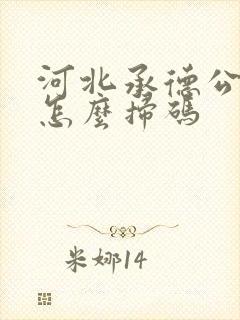 河北承德公
怎麼掃碼
米娜14